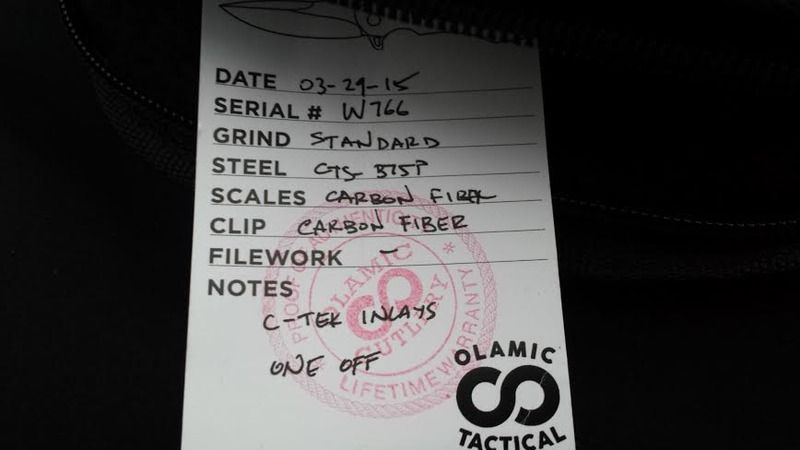 DATE 03-29-15
SERIAL # W766
GRIND STANDARD
STEEL CTS B75P
SCALES CARBON FIBER
CLIP CARBON FIBER
FILEWORK —
NOTES
C-TEK INLAYS
ONE OFF
PROOF OF AUTHENTICITY * LIFETIME WARRANTY *
OLAMIC
CUTLERY
OLAMIC
TACTICAL